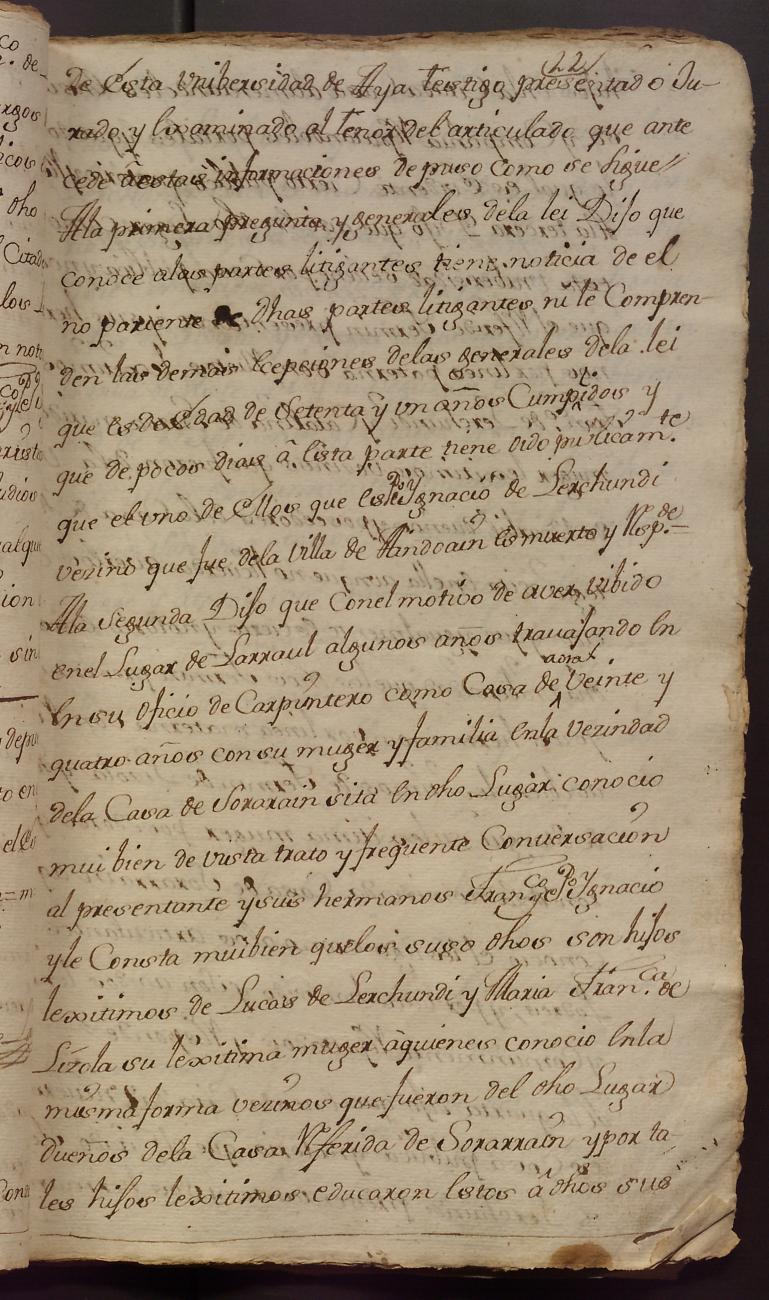 22
de esta Vnibersidad de Aya testigo presentado Ju-
rado y exsaminado al tenor del articulado que ante
cede a estas informaciones depuso como se sigue//
A la primera pregunta y generales dela lei Dijo que
conoce alas partes litigantes tiene noticia de el
no pariente de dhas partes litigantes, ni le Compren-
den las demas ecepciones delas generales dela lei
que es de Edad de Setenta y vn años Cumpidos y
que de pocos dias â esta parte tiene oido publicamte
que el vno de ellos que es Po Ygnacio de Lerchundi
vezino que fue dela Villa de Andoain es muerto y Respde=
A la Segunda Dijo que Conel motivo de aver vibido
enel Lugar de Larraul algunos años travajando en
en su oficio de Carpintero como Cosa de aora Veinte y
quatro años con su muger y familia enla vezindad
dela Casa de Sorarain sita en dho Lugar conocio
mui bien de vista trato y frequente Conversacion
al presentante y sus hermanos Franco y Po Ygnacio
y le Consta mui bien quelos suso dhos son hijos
lexitimos de Lucas de Lerchundi y Maria Franca de
Lizola su lexitima muger âquienes conocio enla
misma forma vezinos que fueron del dho Lugar
dueños dela Casa Referida de Sorarrain y por ta-
les hijos lexitimos educaron estos â dhos sus